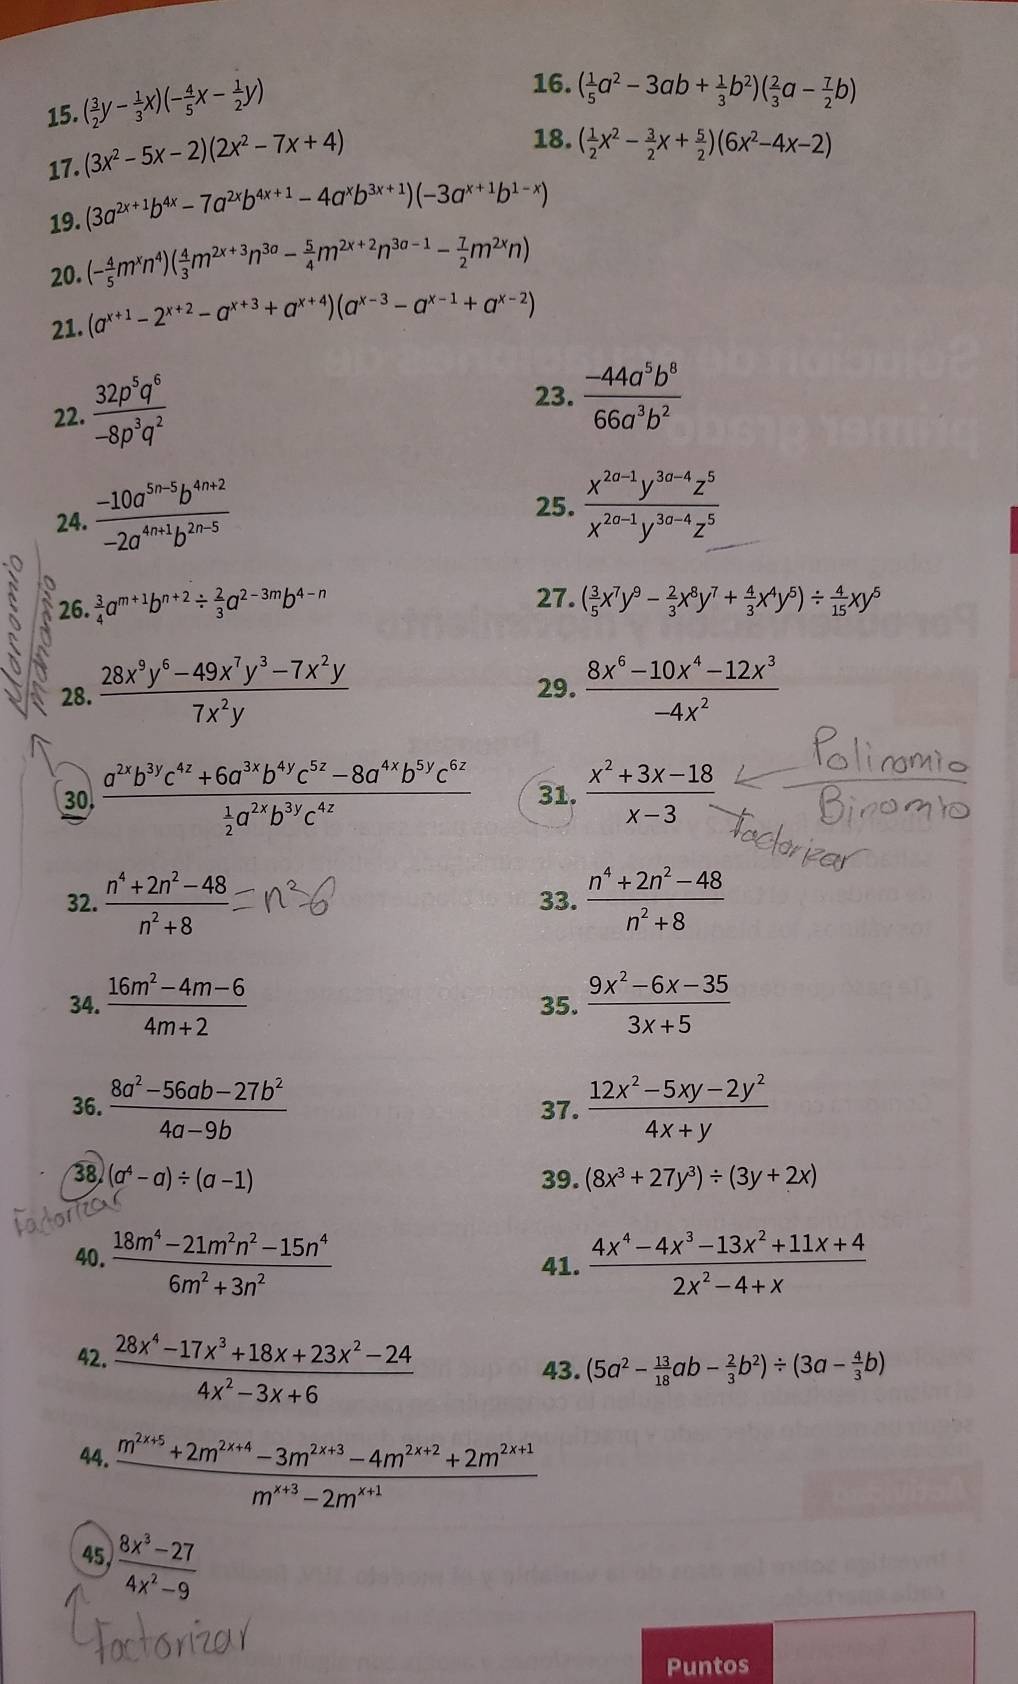 15. (3/2y – 1/3x)(–4/5x – 1/2y)
16. (1/5a² – 3ab + 1/3b²)(2/3a – 7/2b)
17. (3x² – 5x – 2)(2x² – 7x + 4)
18. (1/2x² – 3/2x + 5/2)(6x²–4x–2)
19. (3a²ˣ⁺¹b⁴ˣ – 7a²ˣb⁴ˣ⁺¹ – 4aˣb³ˣ⁺¹)(–3aˣ⁺¹b¹⁻ˣ)
20. (–4/5mˣn⁴)(4/3m²ˣ⁺³n³ᵃ – 5/4m²ˣ⁺²n³ᵃ⁻¹ – 7/2m²ˣn)
21. (aˣ⁺¹ – 2ˣ⁺² – aˣ⁺³ + aˣ⁺⁴)(aˣ⁻³ – aˣ⁻¹ + aˣ⁻²)
22. 32p⁵q⁶ / –8p³q²
23. –44a⁵b⁸ / 66a³b²
24. –10a⁵ⁿ⁻⁵b⁴ⁿ⁺² / –2a⁴ⁿ⁺¹b²ⁿ⁻⁵
25. x²ᵃ⁻¹y³ᵃ⁻⁴z⁵ / x²ᵃ⁻¹y³ᵃ⁻⁴z⁵
26. 3/4aᵐ⁺¹bⁿ⁺² ÷ 2/3a²⁻³ᵐb⁴⁻ⁿ
27. (3/5x⁷y⁹ – 2/3x⁸y⁷ + 4/3x⁴y⁵) ÷ 4/15xy⁵
28. 28x⁹y⁶ – 49x⁷y³ – 7x²y / 7x²y
29. 8x⁶ – 10x⁴ – 12x³ / –4x²
30. a²ˣb³ʸc⁴ᶻ + 6a³ˣb⁴ʸc⁵ᶻ – 8a⁴ˣb⁵ʸc⁶ᶻ / 1/2a²ˣb³ʸc⁴ᶻ
31. x² + 3x – 18 / x – 3
Polinomio
Binomio
Factorizar
32. n⁴ + 2n² – 48 / n² + 8 = n²-6
33. n⁴ + 2n² – 48 / n² + 8
34. 16m² – 4m – 6 / 4m + 2
35. 9x² – 6x – 35 / 3x + 5
36. 8a² – 56ab – 27b² / 4a – 9b
37. 12x² – 5xy – 2y² / 4x + y
38. (a⁴ – a) ÷ (a – 1)
Factorizar
39. (8x³ + 27y³) ÷ (3y + 2x)
40. 18m⁴ – 21m²n² – 15n⁴ / 6m² + 3n²
41. 4x⁴ – 4x³ – 13x² + 11x + 4 / 2x² – 4 + x
42. 28x⁴ – 17x³ + 18x + 23x² – 24 / 4x² – 3x + 6
43. (5a² – 13/18ab – 2/3b²) ÷ (3a – 4/3b)
44. m²ˣ⁺⁵ + 2m²ˣ⁺⁴ – 3m²ˣ⁺³ – 4m²ˣ⁺² + 2m²ˣ⁺¹ / mˣ⁺³ – 2mˣ⁺¹
45. 8x³ – 27 / 4x² – 9
Factorizar
Puntos